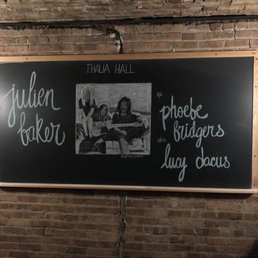 THALIA HALL
julien
baker
phoebe
bridgers
lucy dacus